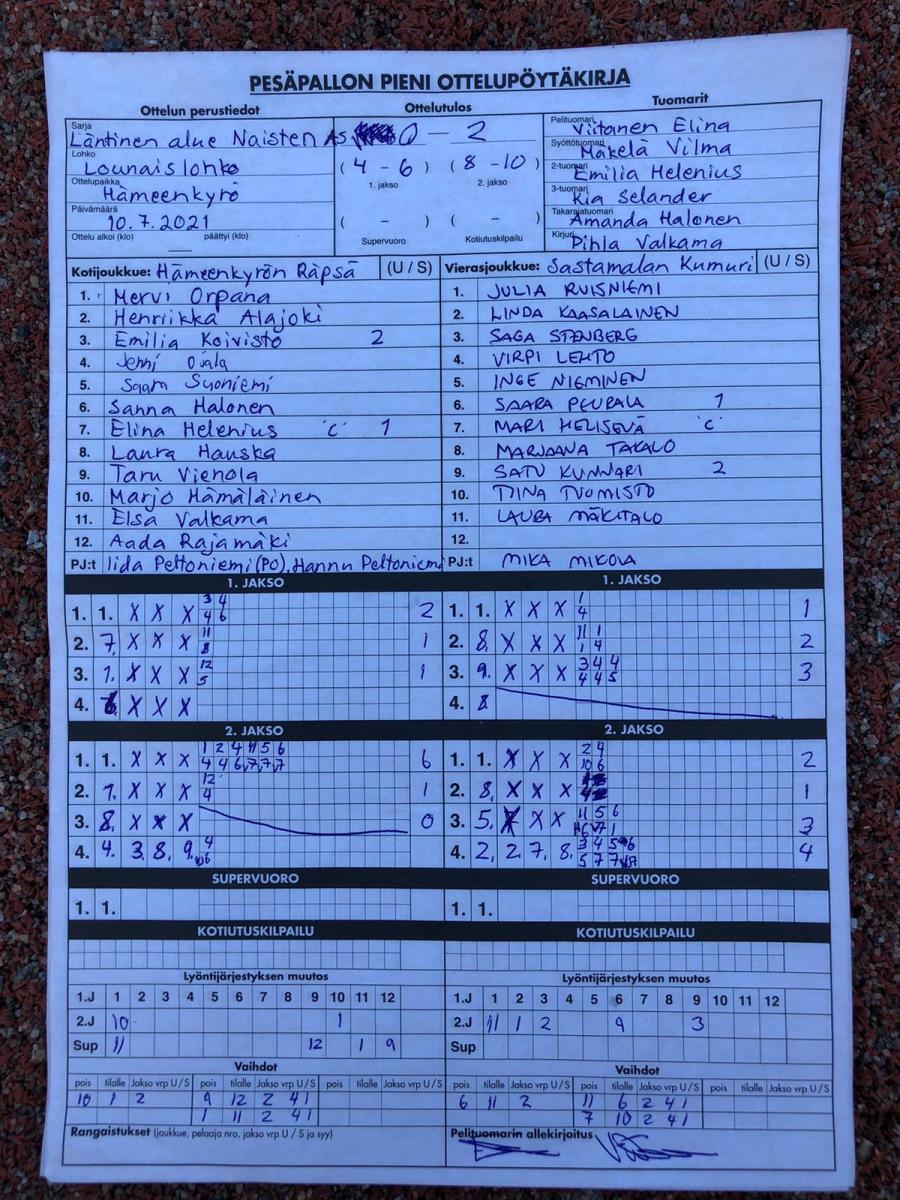 PESÄPALLON PIENI OTTELUPÖYTÄKIRJA
Ottelun perustiedot
Ottelutulos
Tuomarit
Sarja
Läntinen alue Naisten AS
0 - 2
Pelituomari
Viitanen Elina
Lohko
Lounaislohko
(4 - 6) (8 - 10)
1. jakso 2. jakso
Syöttötuomari
Mäkelä Vilma
Ottelupaikka
Hämeenkyrö
2-tuomari
Emilia Helenius
Päivämäärä
10.7.2021
3-tuomari
Kia Selander
Ottelu alkoi (klo) päättyi (klo)
( - ) ( - )
Supervuoro Kotiutuskilpailu
Takarajatuomari
Amanda Halonen
Kirjuri
Pihla Valkama
Kotijoukkue: Hämeenkyrön Räpsä (U / S)
1. Mervi Orpana
2. Henriikka Alajoki
3. Emilia Koivisto 2
4. Jenni Ojala
5. Saara Suoniemi
6. Sanna Halonen
7. Elina Helenius 'C' 1
8. Laura Hauska
9. Taru Vienola
10. Marjo Hämäläinen
11. Elsa Valkama
12. Aada Rajamäki
PJ:t Iida Peltoniemi (PO), Hannu Peltoniemi
Vierasjoukkue: Sastamalan Kumuri (U / S)
1. JULIA RUISNIEMI
2. LINDA KAASALAINEN
3. SAGA STENBERG
4. VIRPI LEHTO
5. INGE NIEMINEN
6. SAARA PEURALA 1
7. MARI HELISEVÄ 'C'
8. MARJAANA TAKALO
9. SATU KUNNARI 2
10. TIINA TUOMISTO
11. LAURA MÄKITALO
12.
PJ:t MIKA MIKOLA
1. JAKSO
3 4
1. 1. X X X 4 6 2
11
2. 7. X X X 8 1
12
3. 1. X X X 5 1
4. X X X
1. JAKSO
1
1. 1. X X X 4 1
11 1
2. 8. X X X 1 4 2
3 4 4
3. 9. X X X 4 4 5 3
4. 8
2. JAKSO
1 2 4 11 5 6
1. 1. X X X 4 4 6 v7 7 v7 6
12
2. 7. X X X 4 1
3. 8. X X X 0
4
4. 4. 3. 8. 9. 6
2. JAKSO
2 4
1. 1. X X X 10 6 2
2. 8. X X X 1
11 5 6
3. 5. X X X 1 3
3 4 5 6
4. 2. 2 7. 8. 5 7 7 v7 4
SUPERVUORO
1. 1.
SUPERVUORO
1. 1.
KOTIUTUSKILPAILU
KOTIUTUSKILPAILU
Lyöntijärjestyksen muutos
1.J 1 2 3 4 5 6 7 8 9 10 11 12
2.J 10 1
Sup 11 12 1 9
Lyöntijärjestyksen muutos
1.J 1 2 3 4 5 6 7 8 9 10 11 12
2.J 11 1 2 9 3
Sup
Vaihdot
pois tilalle Jakso vrp U / S pois tilalle Jakso vrp U / S pois tilalle Jakso vrp U / S
10 1 2 9 12 2 41
1 11 2 41
Vaihdot
pois tilalle Jakso vrp U / S pois tilalle Jakso vrp U / S pois tilalle Jakso vrp U / S
6 11 2 11 6 2 41
7 10 2 41
Rangaistukset (joukkue, pelaaja nro, jakso vrp U / S ja syy)
Pelituomarin allekirjoitus